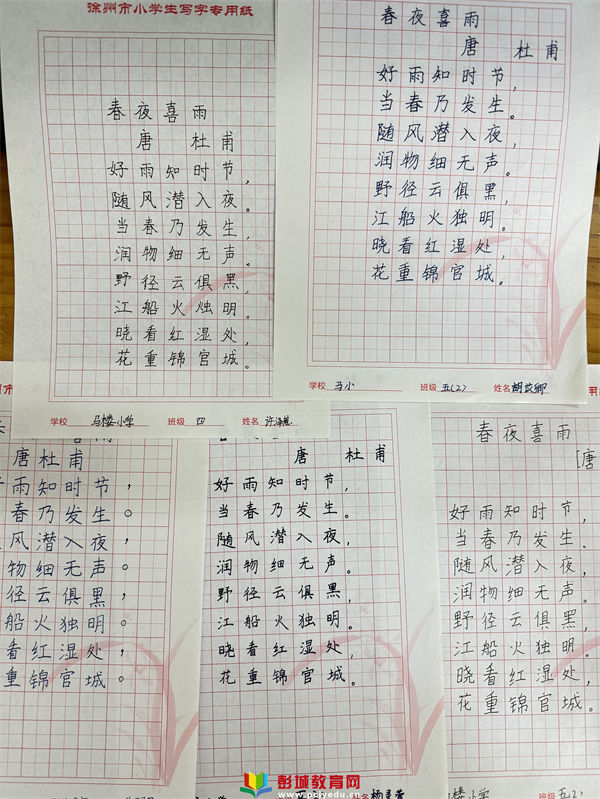 徐州市小学生写字专用纸
春夜喜雨
唐 杜甫
好雨知时节，
随风潜入夜。
当春乃发生，
润物细无声。
野径云俱黑，
江船火烛明。
晓看红湿处，
花重锦官城。
学校 马楼小学 班级 四 姓名
春夜喜雨
唐 杜甫
好雨知时节，
当春乃发生。
随风潜入夜，
润物细无声。
野径云俱黑，
江船火独明。
晓看红湿处，
花重锦官城。
学校 马小 班级 五(2) 姓名
唐杜甫
雨知时节，
春乃发生。
风潜入夜，
物细无声。
径云俱黑，
船火独明。
看红湿处，
重锦官城。
唐 杜甫
好雨知时节，
当春乃发生。
随风潜入夜，
润物细无声。
野径云俱黑，
江船火独明。
晓看红湿处，
花重锦官城。
春夜喜雨
[唐
好雨知时节，
当春乃发生。
随风潜入夜，
润物细无声。
野径云俱黑，
江船火独明。
晓看红湿处，
花重锦官城。
楼小学 班级 五(2)
彭城教育网
www.pcjyedu.cn